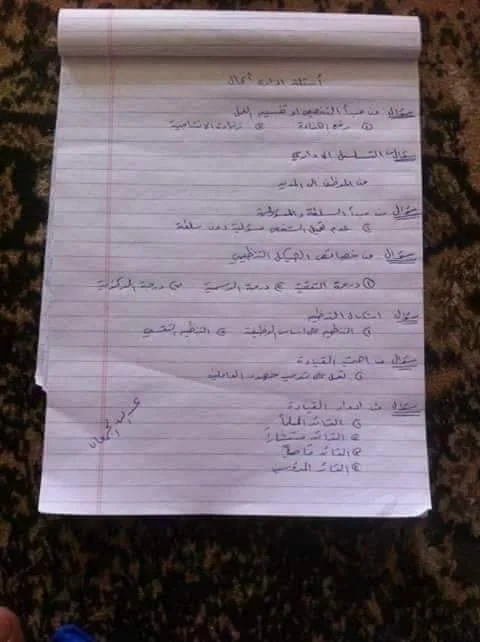 أسئلة ادارة أعمال
سؤال من مبدأ التخصص او تقسيم العمل
① رفع الكفاءة ② زيادة الانتاجية
سؤال التسلسل الاداري
من الموظف الى المدير
سؤال من مبدأ السلطة والمسؤولية
① عدم تحمل الشخص مسؤلية دون سلطة
سؤال من خصائص الهيكل التنظيمي
① درجة التعقيد ② درجة الرسمية درجة المركزية
سؤال اشكال التنظيم
① التنظيم على اساس الوظيفة ② التنظيم
سؤال من اهمية القيادة
① تعمل على توحيد جهود العاملين
سؤال من ادوار القيادة
① القائد
② القائد مستشاراً
③ القائد
④ القائد المدرس